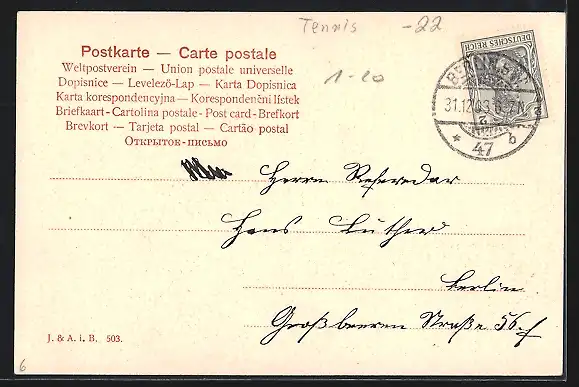 Tennis -22
1-20
Postkarte — Carte postale
Weltpostverein — Union postale universelle
Dopisnice — Levelező-Lap — Karta Dopisnica
Karta korespondencyjna — Korespondenční lístek
Briefkaart - Cartolina postale - Post card - Brefkort
Brevkort — Tarjeta postal — Cartão postal
Открытое письмо
DEUTSCHES REICH
BERLIN
31.12.03. 6-7N.
47 b
Herrn Referendar
Hans Luther
Berlin
Großbeeren Straße 56.f
J. & A. i. B. 503.
6